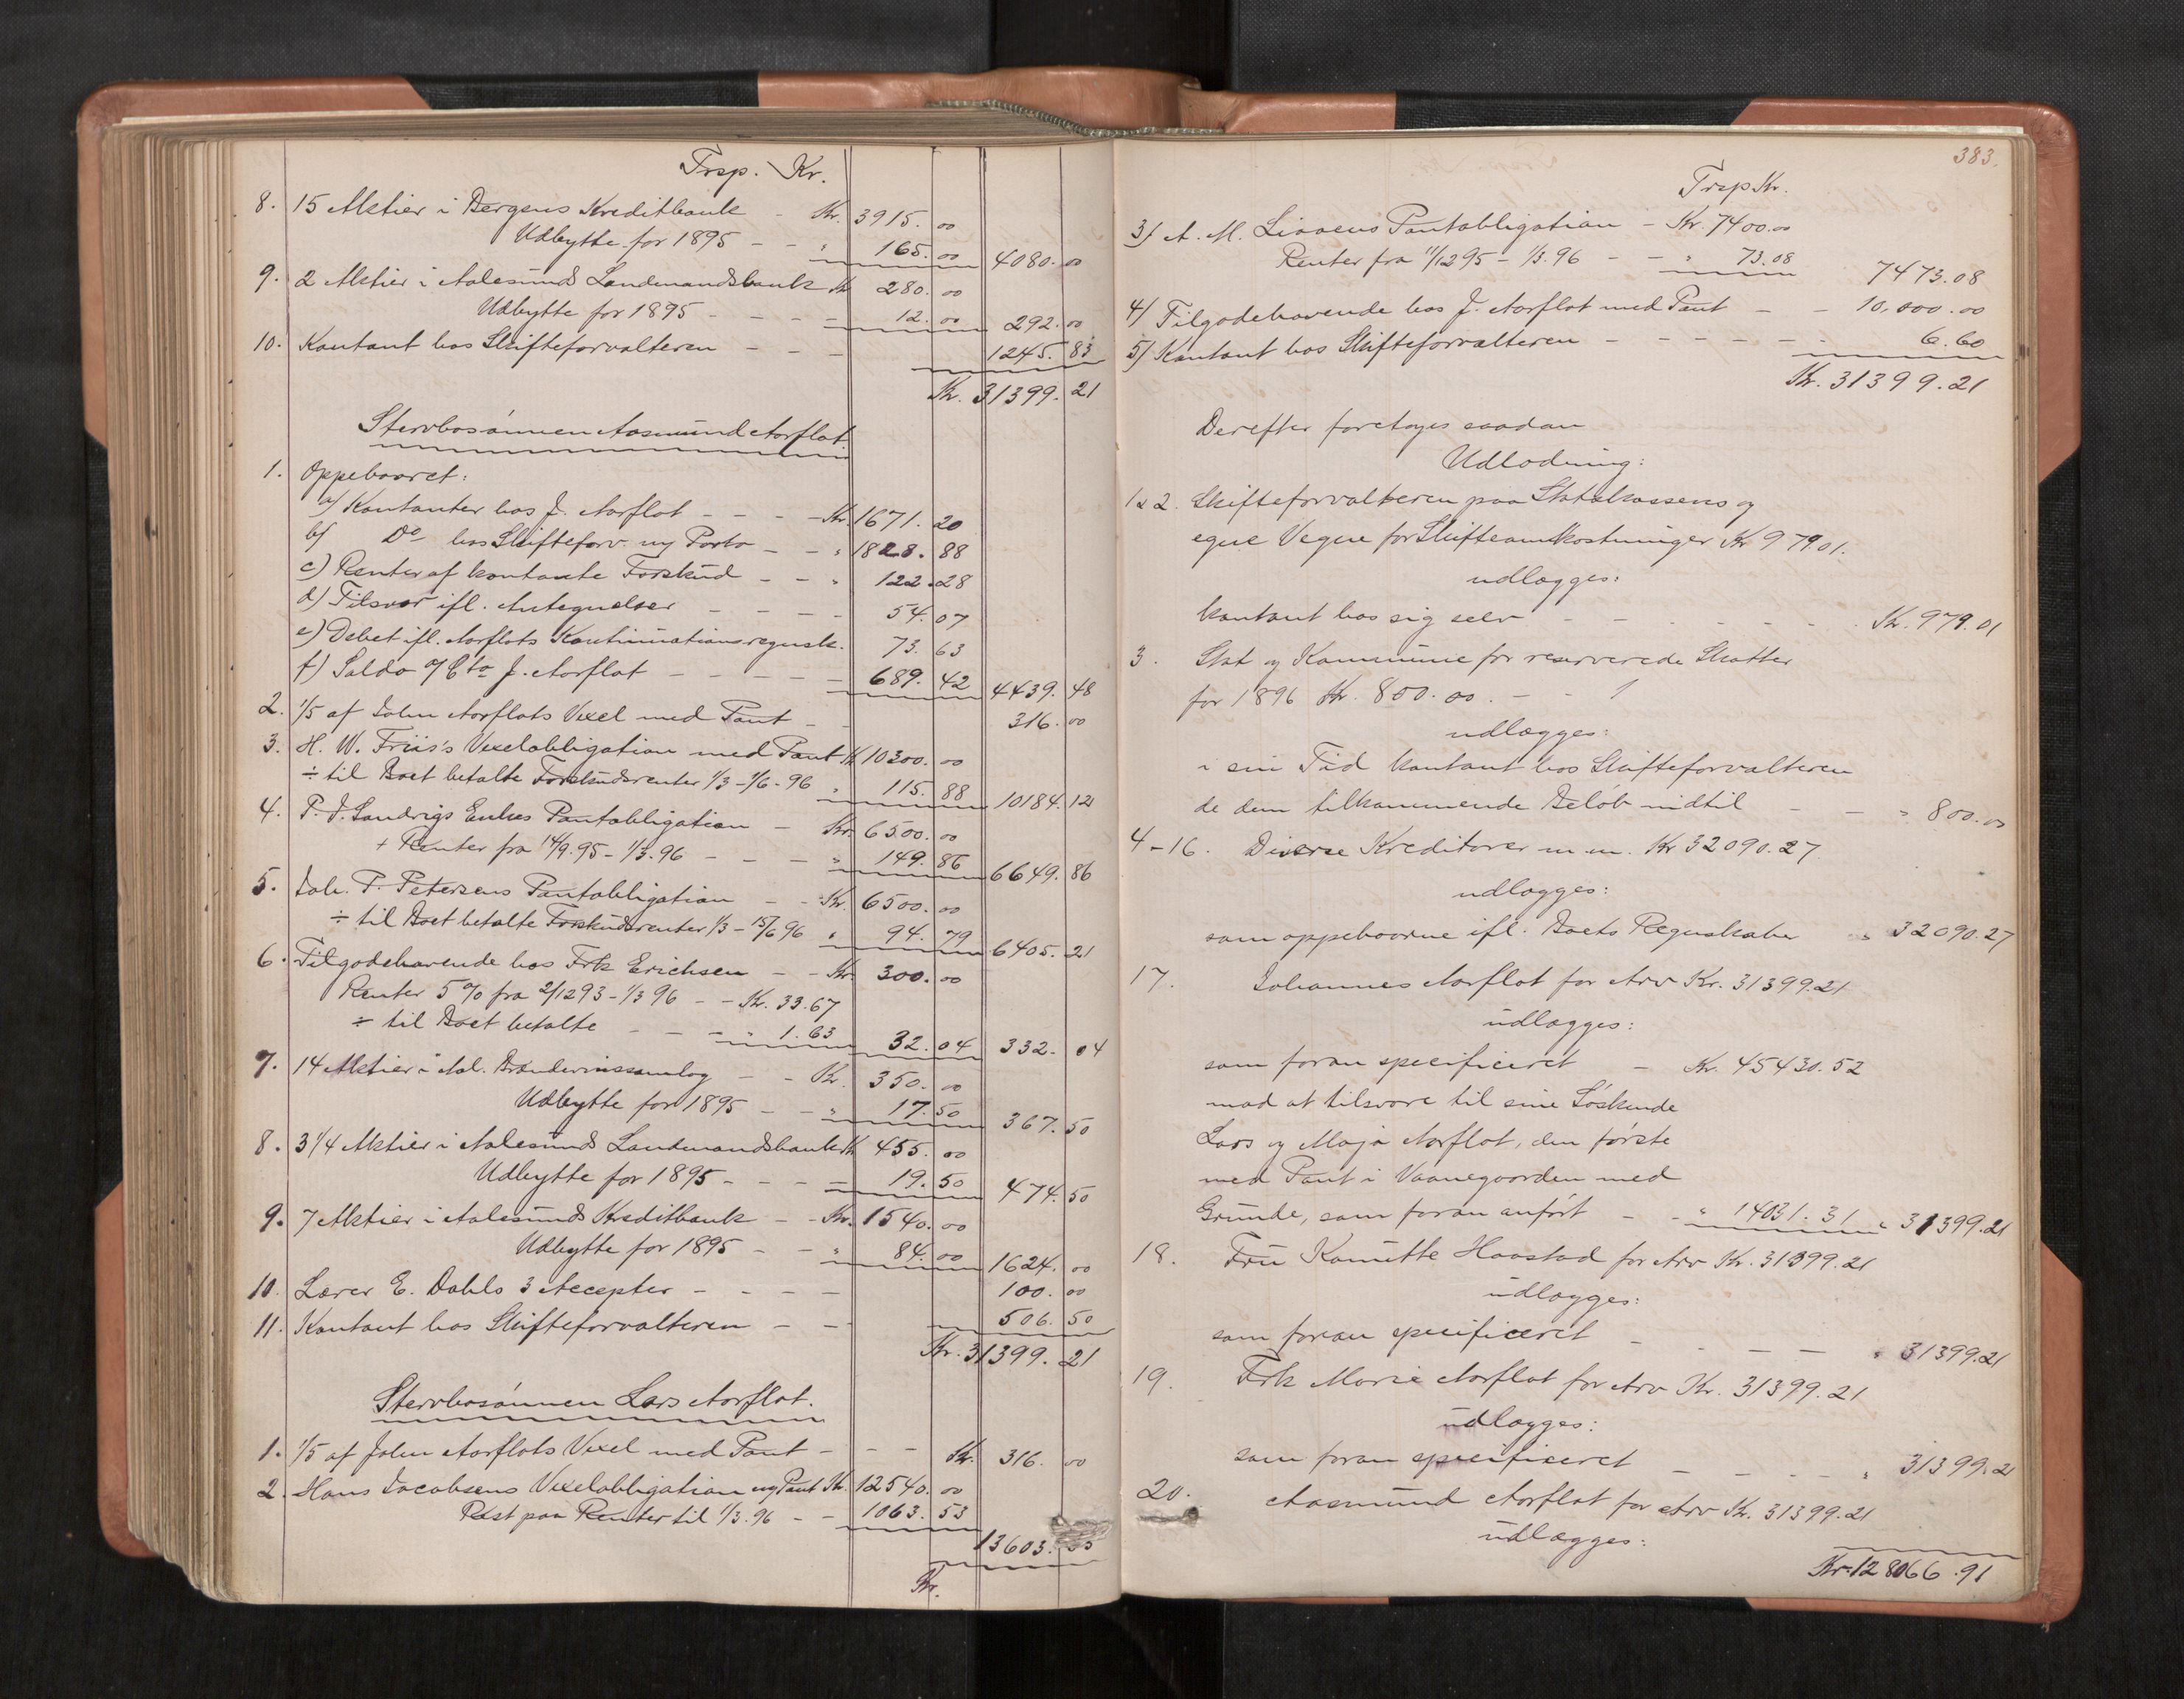 Trsp. Kr.
8. 15 Aktier i Bergens Kreditbank - Kr. 3915. 00
Udbytte for 1895 - - " 165. 00 4080. 00
9. 2 Aktier i Aalesunds Landmandsbank Kr 280. 00
Udbytte for 1895 - - - - 12. 00 292. 00
10. Kontant hos Skifteforvalteren - - - 1245. 83
Kr. 31399. 21
Stervbosønnen Aasmund Aarflot.
1. Oppebaaret:
a) Kontanter hos J. Aarflot - - - - Kr. 1671. 20
b) Do hos Skifteforv. og Porto - - " 1828. 88
c) Renter af kontante Forskud - - " 122. 28
d) Tilsvar ifl. Antegnelser - - - - 54. 07
e) Debet ifl. Aarflots Kontinuationsregnsk. 73. 63
f) Saldo a/ Cto J. Aarflot - - - - - 689. 42 4439. 48
2. 1/5 af John Aarflots Vexel med Pant - - 316. 00
3. H. W. Friis's Vexelobligation med Pant Kr 10300. 00
÷ til Boet betalte Forskudsrenter 1/3 - 1/6 - 96 " 115. 88 10184. 12
4. P. J. Sandvigs Enkes Pantobligation - Kr. 6500. 00
+ Renter fra 14/9. 95 - 1/3. 96 - - - " 149. 86 6649. 86
5. Joh. P. Petersens Pantobligation - - Kr. 6500. 00
÷ til Boet betalte Forskudsrenter 1/3 - 15/6 96 " 94. 79 6405. 21
6. Tilgodehavende hos Frk Erichsen - - Kr. 300. 00
Renter 5 % fra 2/12 93 - 1/3 96 - - Kr. 33.67
÷ til Boet betalte - - - " 1. 63 32. 04 332. 04
7. 14 Aktier i Aal. Brændevinssamlag - - Kr. 350. 00
Udbytte for 1895 - - " 17. 50 367. 50
8. 3 1/4 Aktier i Aalesunds Landmandsbank Kr 455. 00
Udbytte for 1895 - - - - 19. 50 474. 50
9. 7 Aktier i Aalesunds Kreditbank - - Kr. 1540. 00
Udbytte for 1895 - - " 84. 00 1624. 00
10. Lærer E. Dahls 3 Accepter - - - - 100. 00
11. Kontant hos Skifteforvalteren - - 506. 50
Kr. 31399. 21
Stervbosønnen Lars Aarflot.
1. 1/5 af John Aarflots Vexel med Pant - - - Kr. 316. 00
2. Hans Jacobsens Vexelobligation og Pant Kr. 12540. 00
Rest paa Renter til 1/3. 96 - - 1063. 53
13603. 53
Kr.
383.
Trsp Kr.
3) A. M. Liaaens Pantobligation - Kr. 7400.00
Renter fra 11/12 95 - 1/3. 96 - - " 73.08 7473.08
4) Tilgodehavende hos J. Aarflot med Pant - - 10,000.00
5) Kontant hos Skifteforvalteren - - - - - - 6.60
Kr. 31399.21
Derefter foretoges saadan
Udlodning:
1 & 2. Skifteforvalteren paa Statskassens og
egne Vegne for Skifteomkostninger Kr 979.01.
udlægges:
kontant hos sig selv - - - - - - Kr. 979.01
3. Stat og Kommune for reserverede Skatter
for 1896 Kr. 800.00. - -
udlægges:
i sin Tid kontant hos Skifteforvalteren
de dem tilkommende Beløb indtil - - " 800.00
4-16. Diverse Kreditorer m. m. Kr 32090.27
udlægges:
som oppebaarne ifl. Boets Regnskaber " 32090.27
17. Johannes Aarflot for Arv Kr. 31399.21
udlægges:
som foran specificeret - Kr. 45430.52
mod at tilsvare til sine Søskende
Lars og Maja Aarflot, den første
med Pant i Vaanegaarden med
Grunde, som foran anført - - " 14031. 31 " 31399.21
18. Fru Kanutte Haastad for Arv Kr. 31399.21
udlægges:
som foran specificeret - - - - - " 31399.21
19. Frk Marie Aarflot for Arv Kr. 31399.21
udlægges:
som foran specificeret - - - - " 31399.21
20. Aasmund Aarflot for Arv Kr. 31399.21
udlægges:
Kr. 128066.91